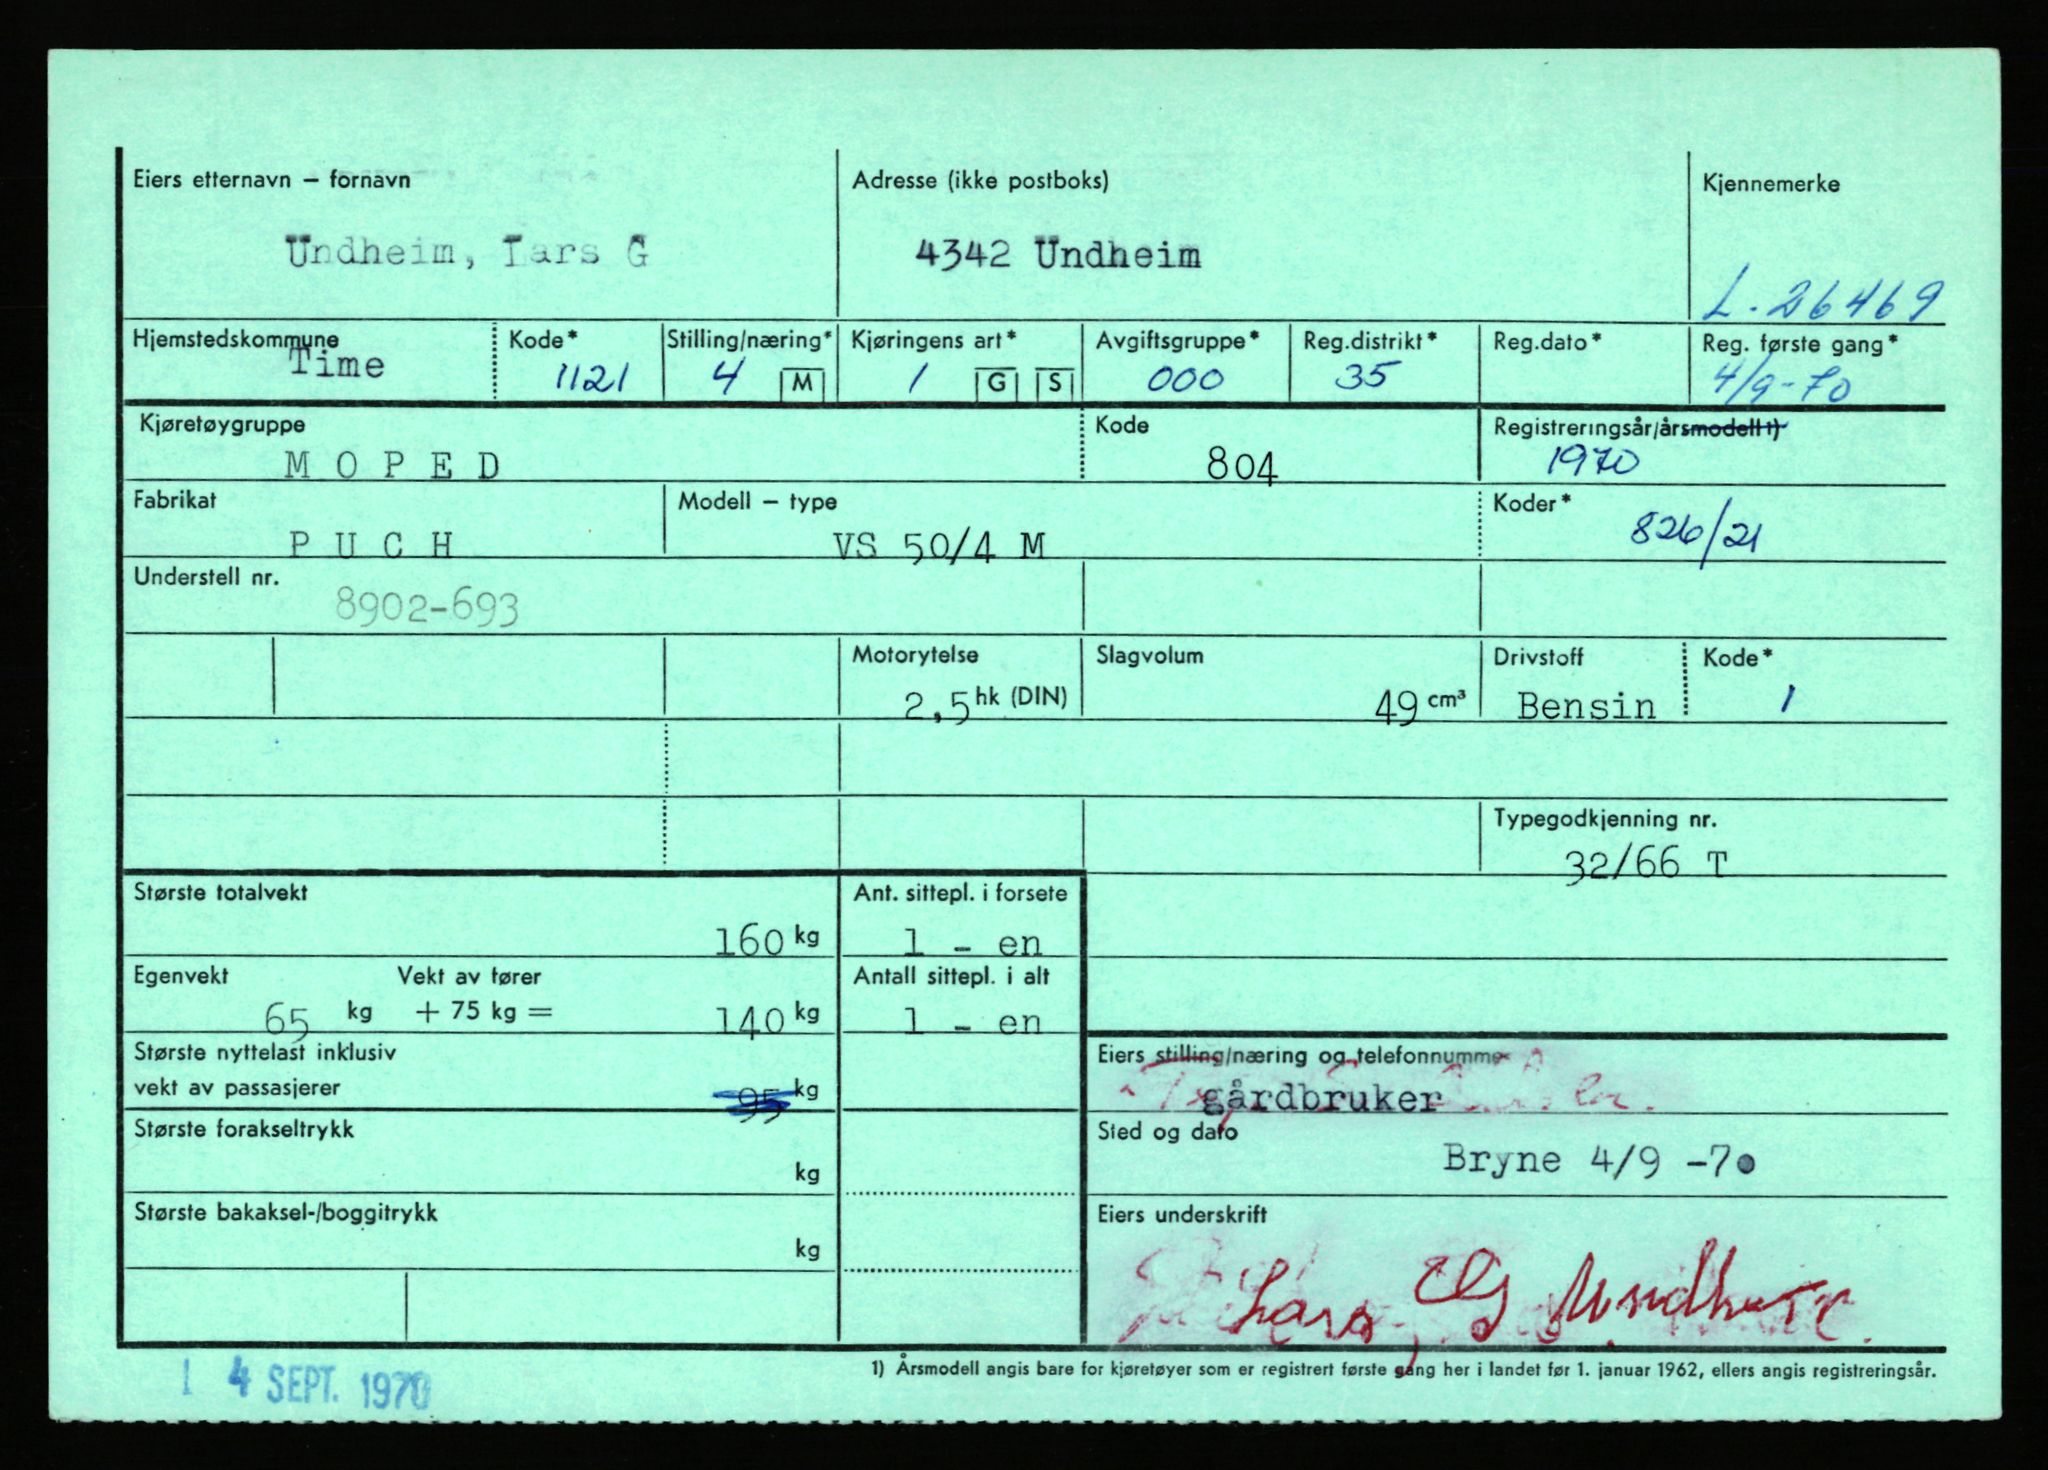 Eiers etternavn – fornavn Adresse (ikke postboks) Kjennemerke
Undheim, Lars G 4342 Undheim L-26469
Hjemstedskommune Kode* Stilling/næring* Kjøringens art* Avgiftsgruppe* Reg.distrikt* Reg.dato* Reg. første gang*
Time 1121 4 M 1 G S 000 35 4/9-70
Kjøretøygruppe Kode Registreringsår/årsmodell 1)
MOPED 804 1970
Fabrikat Modell – type Koder*
PUCH VS 50/4 M 826/21
Understell nr.
8902-693
Motorytelse Slagvolum Drivstoff Kode*
2,5 hk (DIN) 49 cm³ Bensin 1
Typegodkjenning nr.
32/66 T
Største totalvekt Ant. sittepl. i forsete
160 kg 1 - en
Egenvekt Vekt av fører Antall sittepl. i alt
65 kg + 75 kg = 140 kg 1 - en
Største nyttelast inklusiv Eiers stilling/næring og telefonnumme
vekt av passasjerer 95 kg gårdbruker
Største forakseltrykk Sted og dato
kg Bryne 4/9 -70
Største bakaksel-/boggitrykk Eiers underskrift
kg
Lars G Undheim
1) Årsmodell angis bare for kjøretøyer som er registrert første gang her i landet før 1. januar 1962, ellers angis registreringsår.
4 SEPT. 1970